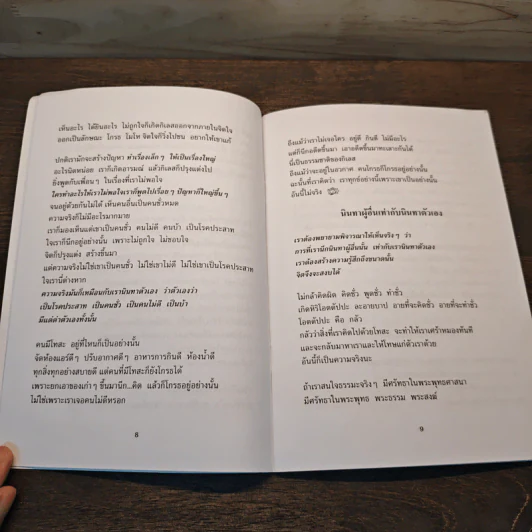 เห็นอะไร ได้ยินอะไร ไม่ถูกใจก็เกิดกิเลสออกจากภายในจิตใจ
ออกเป็นลักษณะ โกรธ โมโห จิตใจก็วิ่งไปชน อยากให้เขาแก้
ปกติเรามักจะสร้างปัญหา ทำเรื่องเล็กๆ ให้เป็นเรื่องใหญ่
อะไรนิดหน่อย เราก็เกิดอารมณ์ แล้วก็เกิดปรุงแต่งไป
ยิ่งพูดกับเพื่อนๆ ในเรื่องที่เราไม่พอใจ
ใครทำอะไรให้เราไม่พอใจเราก็พูดไปเรื่อยๆ ปัญหาก็ใหญ่ขึ้นๆ
จนอยู่ด้วยกันไม่ได้ เห็นคนอื่นเป็นคนชั่วหมด
ความจริงก็ไม่มีอะไรมากมาย
เราก็มองเห็นแต่เขาเป็นคนชั่ว คนไม่ดี คนบ้า เป็นโรคประสาท
ใจเราก็นึกอยู่อย่างนั้น เพราะไม่ถูกใจ ไม่ชอบใจ
จิตก็ปรุงแต่ง สร้างขึ้นมา
แต่ความจริงไม่ใช่เขาเป็นคนชั่ว ไม่ใช่เขาไม่ดี ไม่ใช่เขาเป็นโรคประสาท
ใจเรานี้ต่างหาก
ความจริงมันก็เหมือนกับเรานินทาตัวเอง ว่าตัวเองว่า
เป็นโรคประสาท เป็นคนชั่ว เป็นคนไม่ดี เป็นบ้า
มีแต่ด่าตัวเองทั้งนั้น
คนมีโทสะ อยู่ที่ไหนก็เป็นอย่างนั้น
จัดห้องแอร์ดีๆ ปรับอากาศดีๆ อาหารการกินดี ห้องน้ำดี
ทุกสิ่งทุกอย่างสบายดี แต่คนที่มีโทสะก็ยังโกรธได้
เพราะยกเอาของเก่าๆ ขึ้นมานึก...คิด แล้วก็โกรธอยู่อย่างนั้น
ไม่ใช่เพราะเราเจอคนไม่ดีหรอก
8
ถึงแม้ว่าเราไม่เจอใคร อยู่ดี กินดี ไม่มีอะไร
แต่ก็นึกอดีตขึ้นมา เอาอดีตขึ้นมาทะเลาะกันได้
นี่เป็นธรรมชาติของกิเลส
ถึงแม้ว่าจะอยู่ในอวกาศ คนโกรธก็โกรธอยู่อย่างนั้น
ฉะนั้นที่เราคิดว่า เราทุกข์อย่างนี้เพราะเขาเป็นอย่างนั้น
อันนี้ไม่จริง
นินทาผู้อื่นเท่ากับนินทาตัวเอง
เราต้องพยายามพิจารณาให้เห็นจริงๆ ว่า
การที่เรานึกนินทาผู้อื่นนั้น เท่ากับเรานินทาตัวเอง
เราต้องสร้างความรู้สึกถึงขนาดนั้น
จิตจึงจะสงบได้
ไม่กล้าคิดผิด คิดชั่ว พูดชั่ว ทำชั่ว
เกิดหิริโอตตัปปะ ละอายบาป อายที่จะคิดชั่ว อายที่จะทำชั่ว
โอตตัปปะ คือ กลัว
กลัวว่าสิ่งที่เราคิดไปด้วยโทสะ จะทำให้เราเศร้าหมองทันที
และจะกลับมาหาเราและให้โทษแก่ตัวเราด้วย
อันนี้ก็เป็นความจริงนะ
ถ้าเราสนใจธรรมะจริงๆ มีศรัทธาในพระพุทธศาสนา
มีศรัทธาในพระพุทธ พระธรรม พระสงฆ์
9